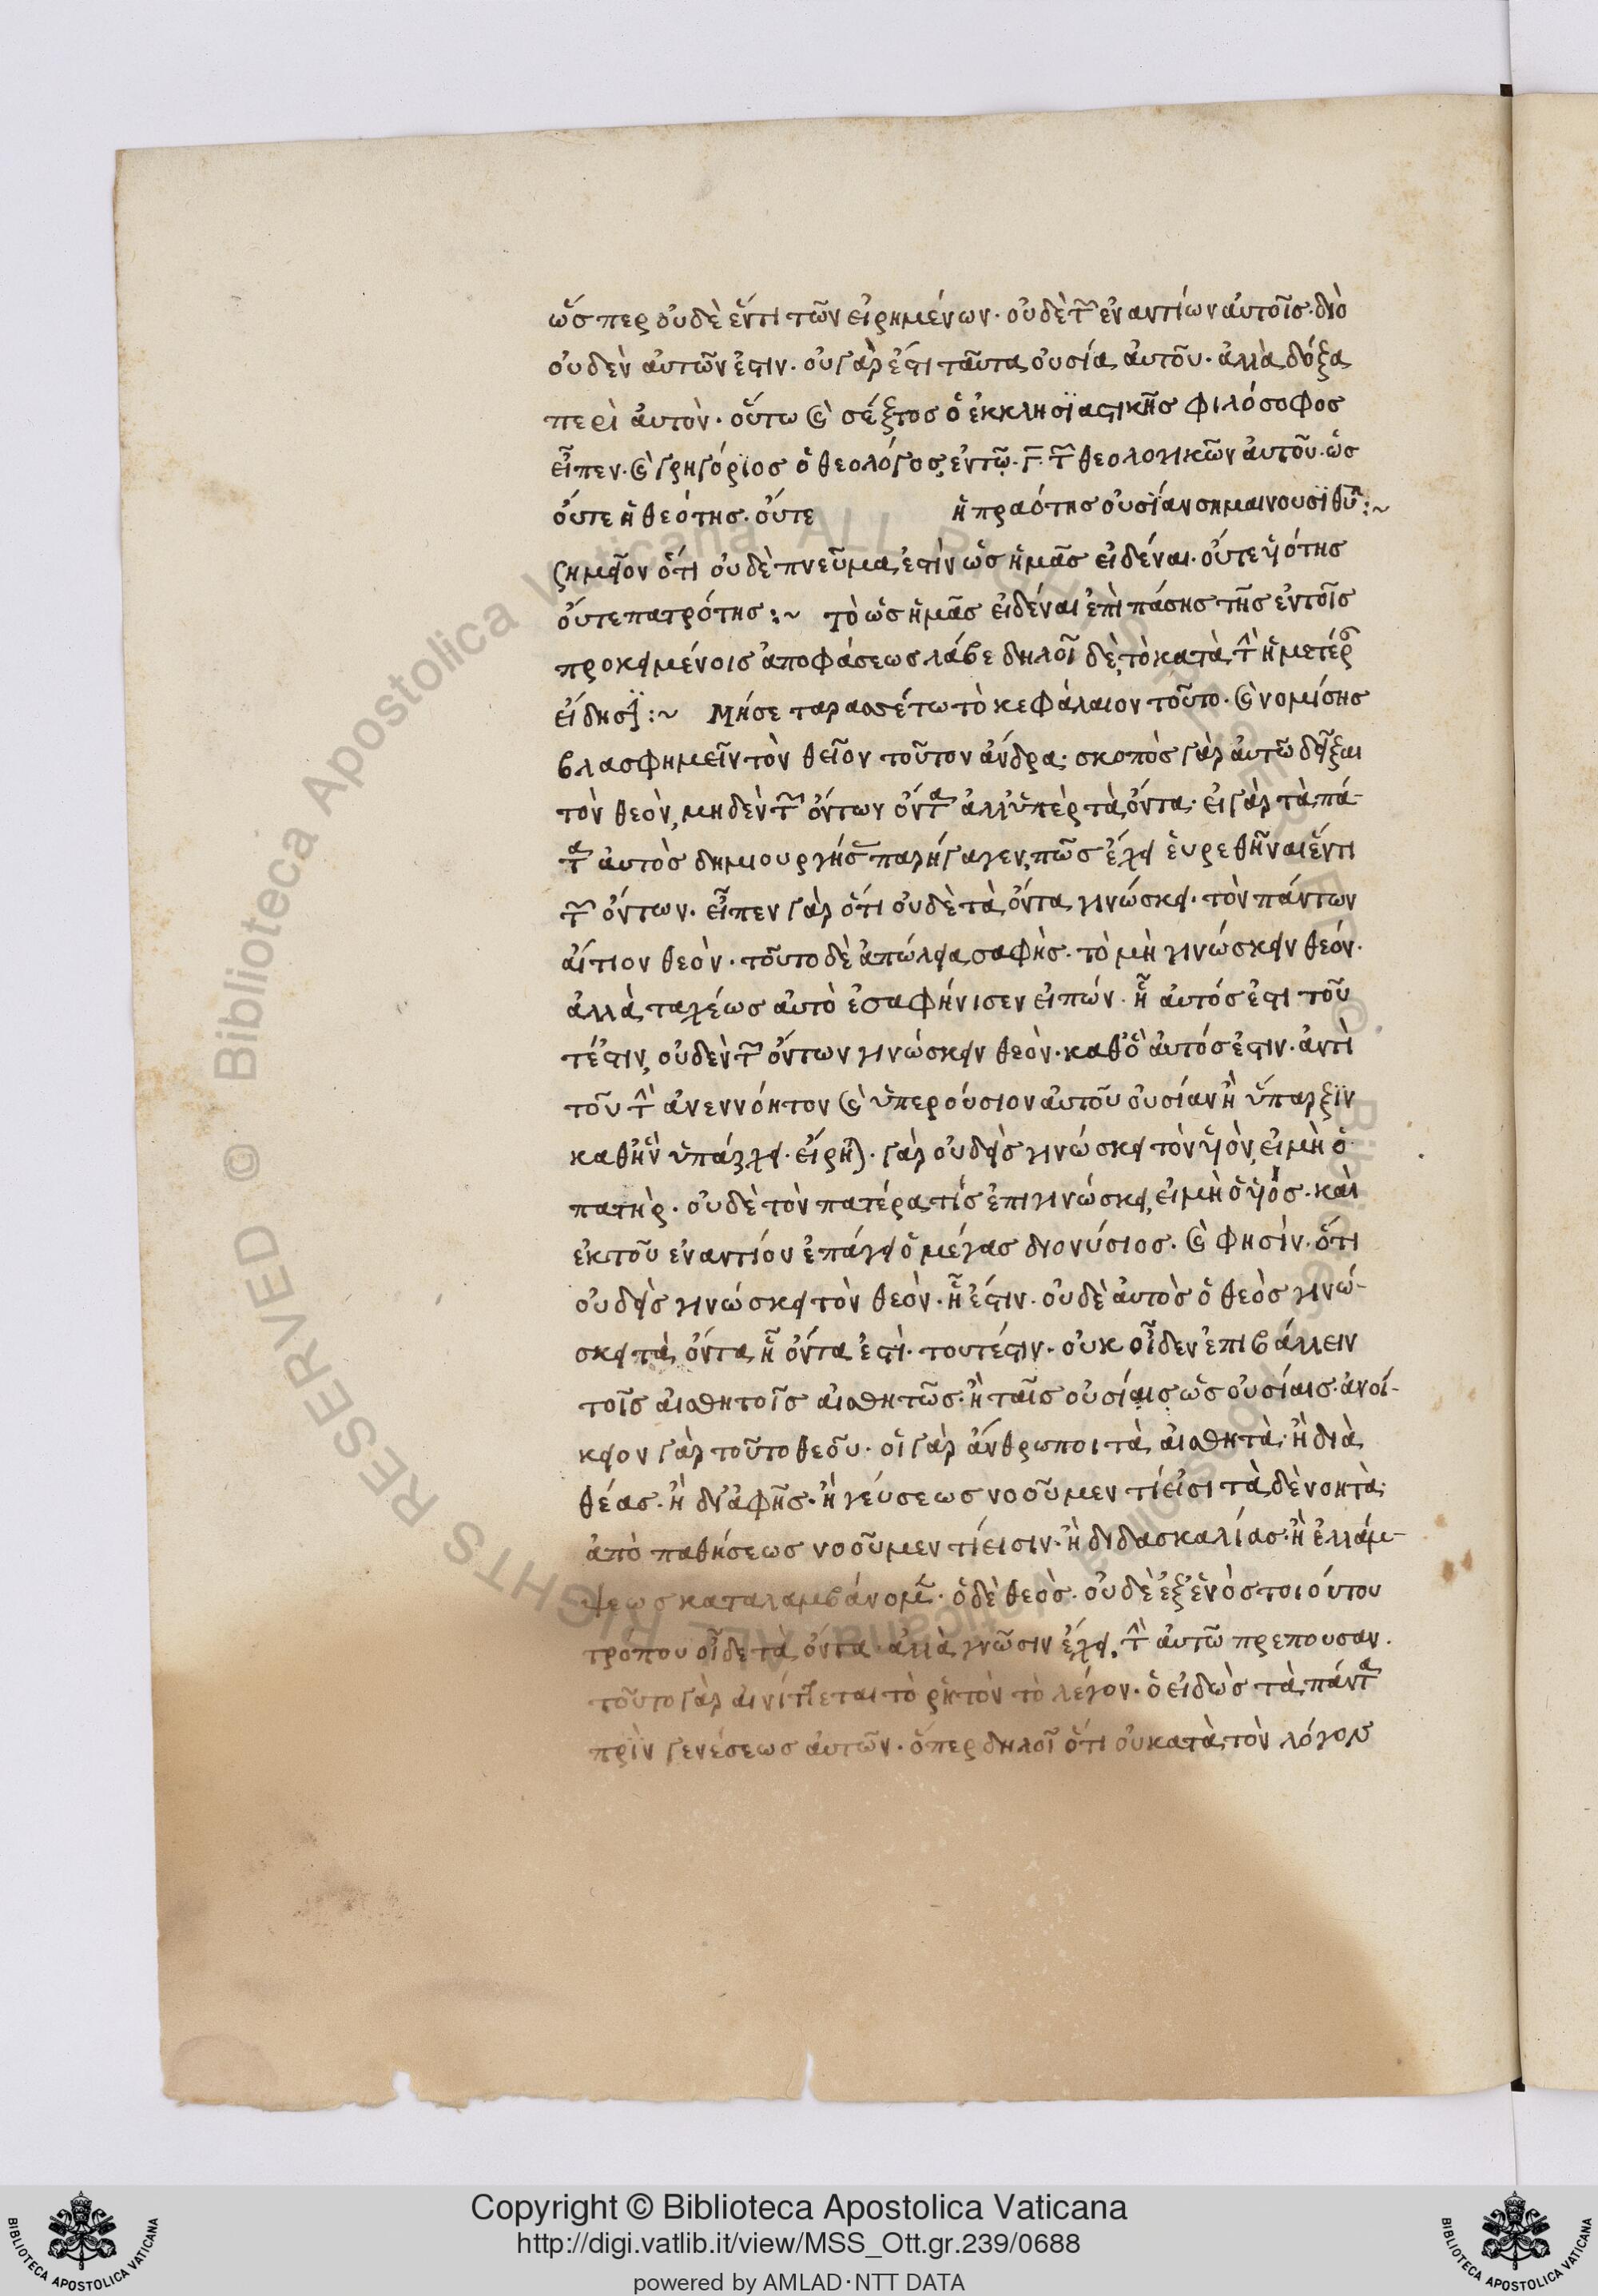 ὥσπερ οὐδὲ ἕν τι τῶν εἰρημένων· οὐδὲ τῶν ἐναντίων αὐτοῖς· διὸ
οὐδὲν αὐτῶν ἐστιν· οὐ γάρ ἐστι ταῦτα οὐσία αὐτοῦ· ἀλλὰ δόξα
περὶ αὐτὸν· οὕτω καὶ σέξτος ὁ ἐκκλησϊαστικῆς φιλόσοφος
εἶπεν· καὶ γρηγόριος ὁ θεολόγος, ἐν τῷ· γ· τῶν θεολογικῶν αὐτοῦ· ὡς
οὔτε ἡ θεότης· οὔτε ἡ πραότης οὐσίαν σημαινουσϊ θῦ :~
ζημεῖον ὅτι οὐδὲ πνεῦμα ἐστὶν ὡς ἡμᾶς εἰδέναι· οὔτε υἱότης
οὔτε πατρότης :~ τὸ ὡς ἡμᾶς εἰδέναι ἐπὶ πάσης τῆς ἐν τοῖς
προκειμένοις ἀποφάσεως λάβε δηλοῖ δὲ, τὸ κατὰ τὴν ἡμετέραν
εἴδησϊν :~ Μή σε ταρασσέτω τὸ κεφάλαιον τοῦτο· καὶ νομίσης
βλασφημεῖν τὸν θεῖον τοῦτον ἄνδρα· σκοπὸς γὰρ αὐτῶ δεῖξαι
τὸν θεὸν, μηδὲν τῶν ὄντων ὄντα ἀλλ' ὑπὲρ τὰ ὄντα· εἰ γὰρ τὰ πά-
τα αὐτὸς δημιουργήσας παρήγαγεν, πῶς ἔχει εὑρεθῆναι ἕν τι
τῶν ὄντων· εἶπεν γὰρ ὅτι οὐδὲ τὰ ὄντα γινώσκει· τὸν πάντων
αἴτιον θεὸν· τοῦτο δὲ ἀπώλεια σαφὴς· τὸ μὴ γινώσκειν θεόν·
ἀλλὰ ταχέως αὐτὸ ἐσαφήνισεν εἰπών· ἧ αὐτός ἐστι τοῦ
τέστιν, οὐδὲν τῶν ὄντων γινώσκειν θεὸν· καθ' ὃ αὐτός ἐστιν· ἀντὶ
τοῦ τὴν ἀνεννόητον καὶ ὑπερούσιον αὐτοῦ οὐσίαν ἢ ὕπαρξϊν
καθ' ἣν ὑπάρχει· εἴρηται· γὰρ οὐδεὶς γινώσκει τὸν υἱὸν, εἰ μὴ ὁ
πατὴρ· οὐδὲ τὸν πατέρα τίς ἐπιγινώσκει, εἰ μὴ ὁ υἱὸς· καὶ
ἐκ τοῦ ἐναντίου ἐπάγει ὁ μέγας διονύσιος· καὶ φησὶν· ὅτι
οὐδεὶς γινώσκει τὸν θεὸν· ἧ ἐστιν· οὐδὲ αὐτὸς ὁ θεὸς γινώ-
σκει τὰ ὄντα ἧ ὄντα ἐστὶ· τουτέστιν· οὐκ οἶδεν ἐπιβάλλειν
τοῖς αἰσθητοῖς αἰσθητῶς· ἢ ταῖς οὐσίαις ὡς οὐσίαις· ἀνοί-
κειον γὰρ τοῦτο θεοῦ· οἱ γὰρ ἄνθρωποι τὰ αἰσθητὰ· ἢ διὰ
θέας· ἢ δι' ἀφῆς· ἢ γεύσεως νοοῦμεν τί εἰσι τὰ δὲ νοητὰ·
ἀπὸ παθήσεως νοοῦμεν τί εἰσιν· ἢ διδασκαλίας· ἢ ἐλλάμ-
ψεως καταλαμβάνομεν· ὁ δὲ θεὸς· οὐδὲ ἐξ ἑνὸς τοιούτου
τρόπου οἶδε τὰ ὄντα· ἀλλὰ γνῶσιν ἔχει, τὴν αὐτῶ πρεπουσαν·
τοῦτο γὰρ αἰνίττεται τὸ ῥητὸν τὸ λέγον· ὁ εἰδὼς τὰ πάντα
πρὶν γενέσεως αὐτῶν· ὅπερ δηλοῖ ὅτι οὐ κατὰ τὸν λόγον
Copyright © Biblioteca Apostolica Vaticana
http://digi.vatlib.it/view/MSS_Ott.gr.239/0688
powered by AMLAD·NTT DATA